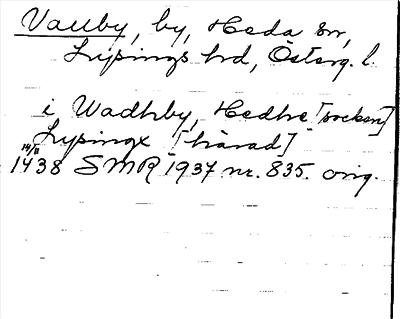 Vallby, by, Heda sn,
Lysings hd, Österg. l.
i Wadhby, Hedhe [socken]
Lysingx [härad]
14/11
1438 SMR 1937 nr. 835. orig.